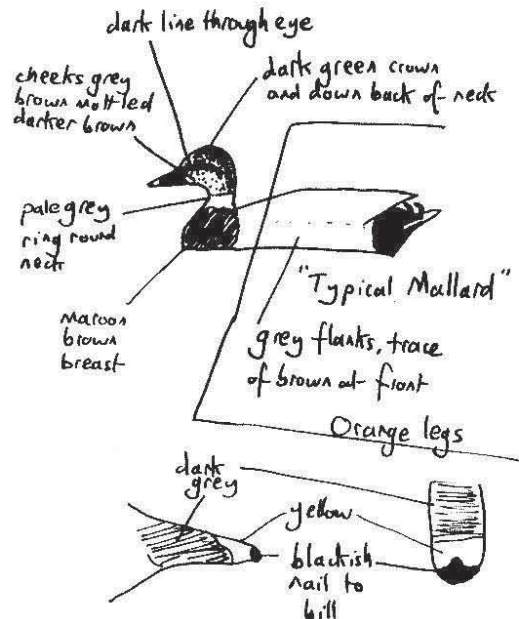 dark line through eye
cheeks grey
brown mottled
darker brown
dark green crown
and down back of neck
pale grey
ring round
neck
maroon
brown
breast
"Typical Mallard"
grey flanks, trace
of brown at front
Orange legs
dark
grey
yellow
blackish
nail to
bill